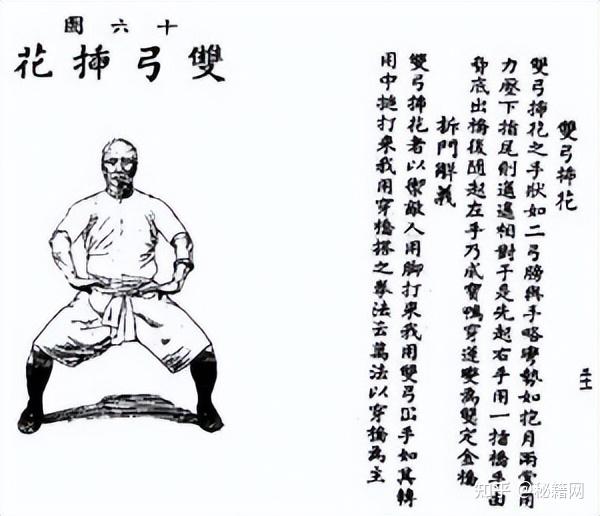 雙弓揷花
雙弓揷花之手狀如二弓膀與手略彎勢如抱月兩掌用
力壓下指尾則遙遙相對于是先起右手用一指橋手由
脅底出橋後隨起左手乃成寶鴨穿蓮變爲雙定金橋
拆門解義
雙弓揷花者以禦敵人用脚打來我用雙弓出手如其轉
用中搥打來我用穿橋搭之拳法云萬法以穿橋爲主
十六圖
雙弓揷花
知乎 @秘籍网